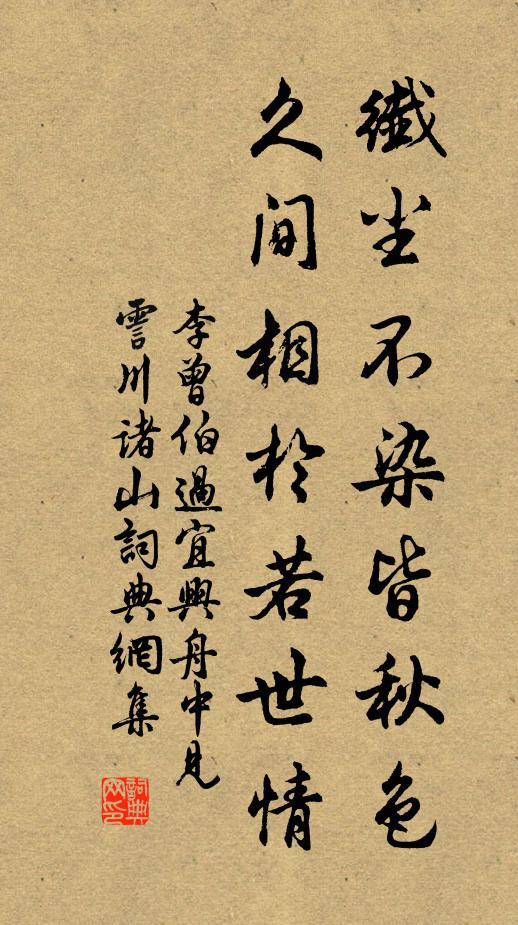 纖尘不染皆秋色
久间相於若世情
李曾伯過宜興舟中見
霅川諸山詞典網集
詞典网印